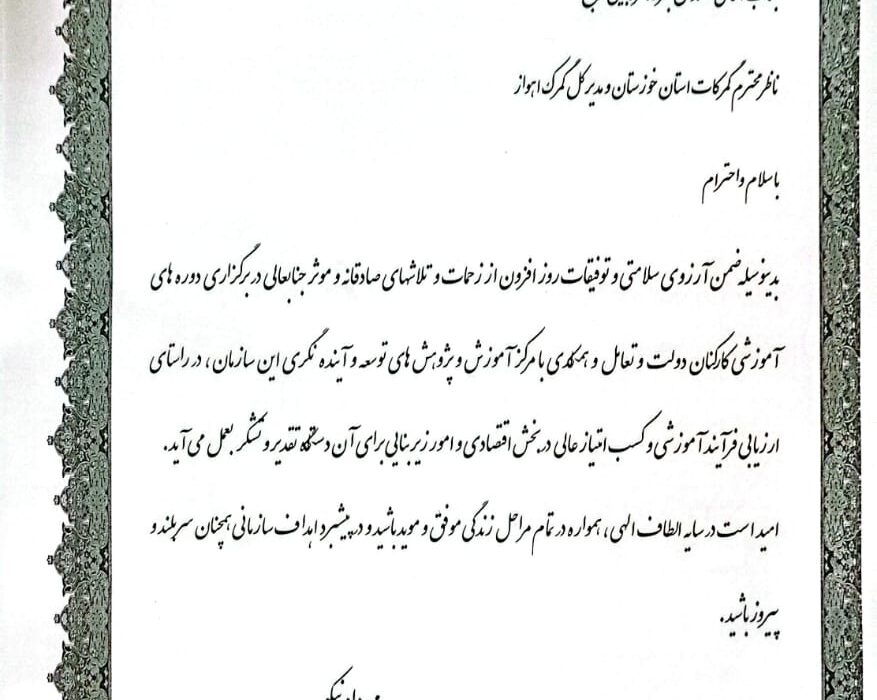 ناظر محترم گمرکات استان خوزستان و مدیر کل گمرک اهواز
باسلام و احترام
بدینوسیله ضمن آرزوی سلامتی و توفیقات روز افزون از زحمات و تلاشهای صادقانه و موثر جنابعالی در برگزاری دوره های
آموزشی کارکنان دولت و تعامل و همکاری با مرکز آموزش و پژوهش های توسعه و آینده نگری این سازمان، در راستای
ارزیابی فرآیند آموزشی و کسب امتیاز عالی در بخش اقتصادی و امور زیربنایی برای آن دستگاه تقدیر و تشکر بعمل می آید.
امید است در سایه الطاف الهی، همواره در تمام مراحل زندگی موفق و موید باشید و در پیشبرد اهداف سازمانی همچنان سربلند و
پیروز باشید.